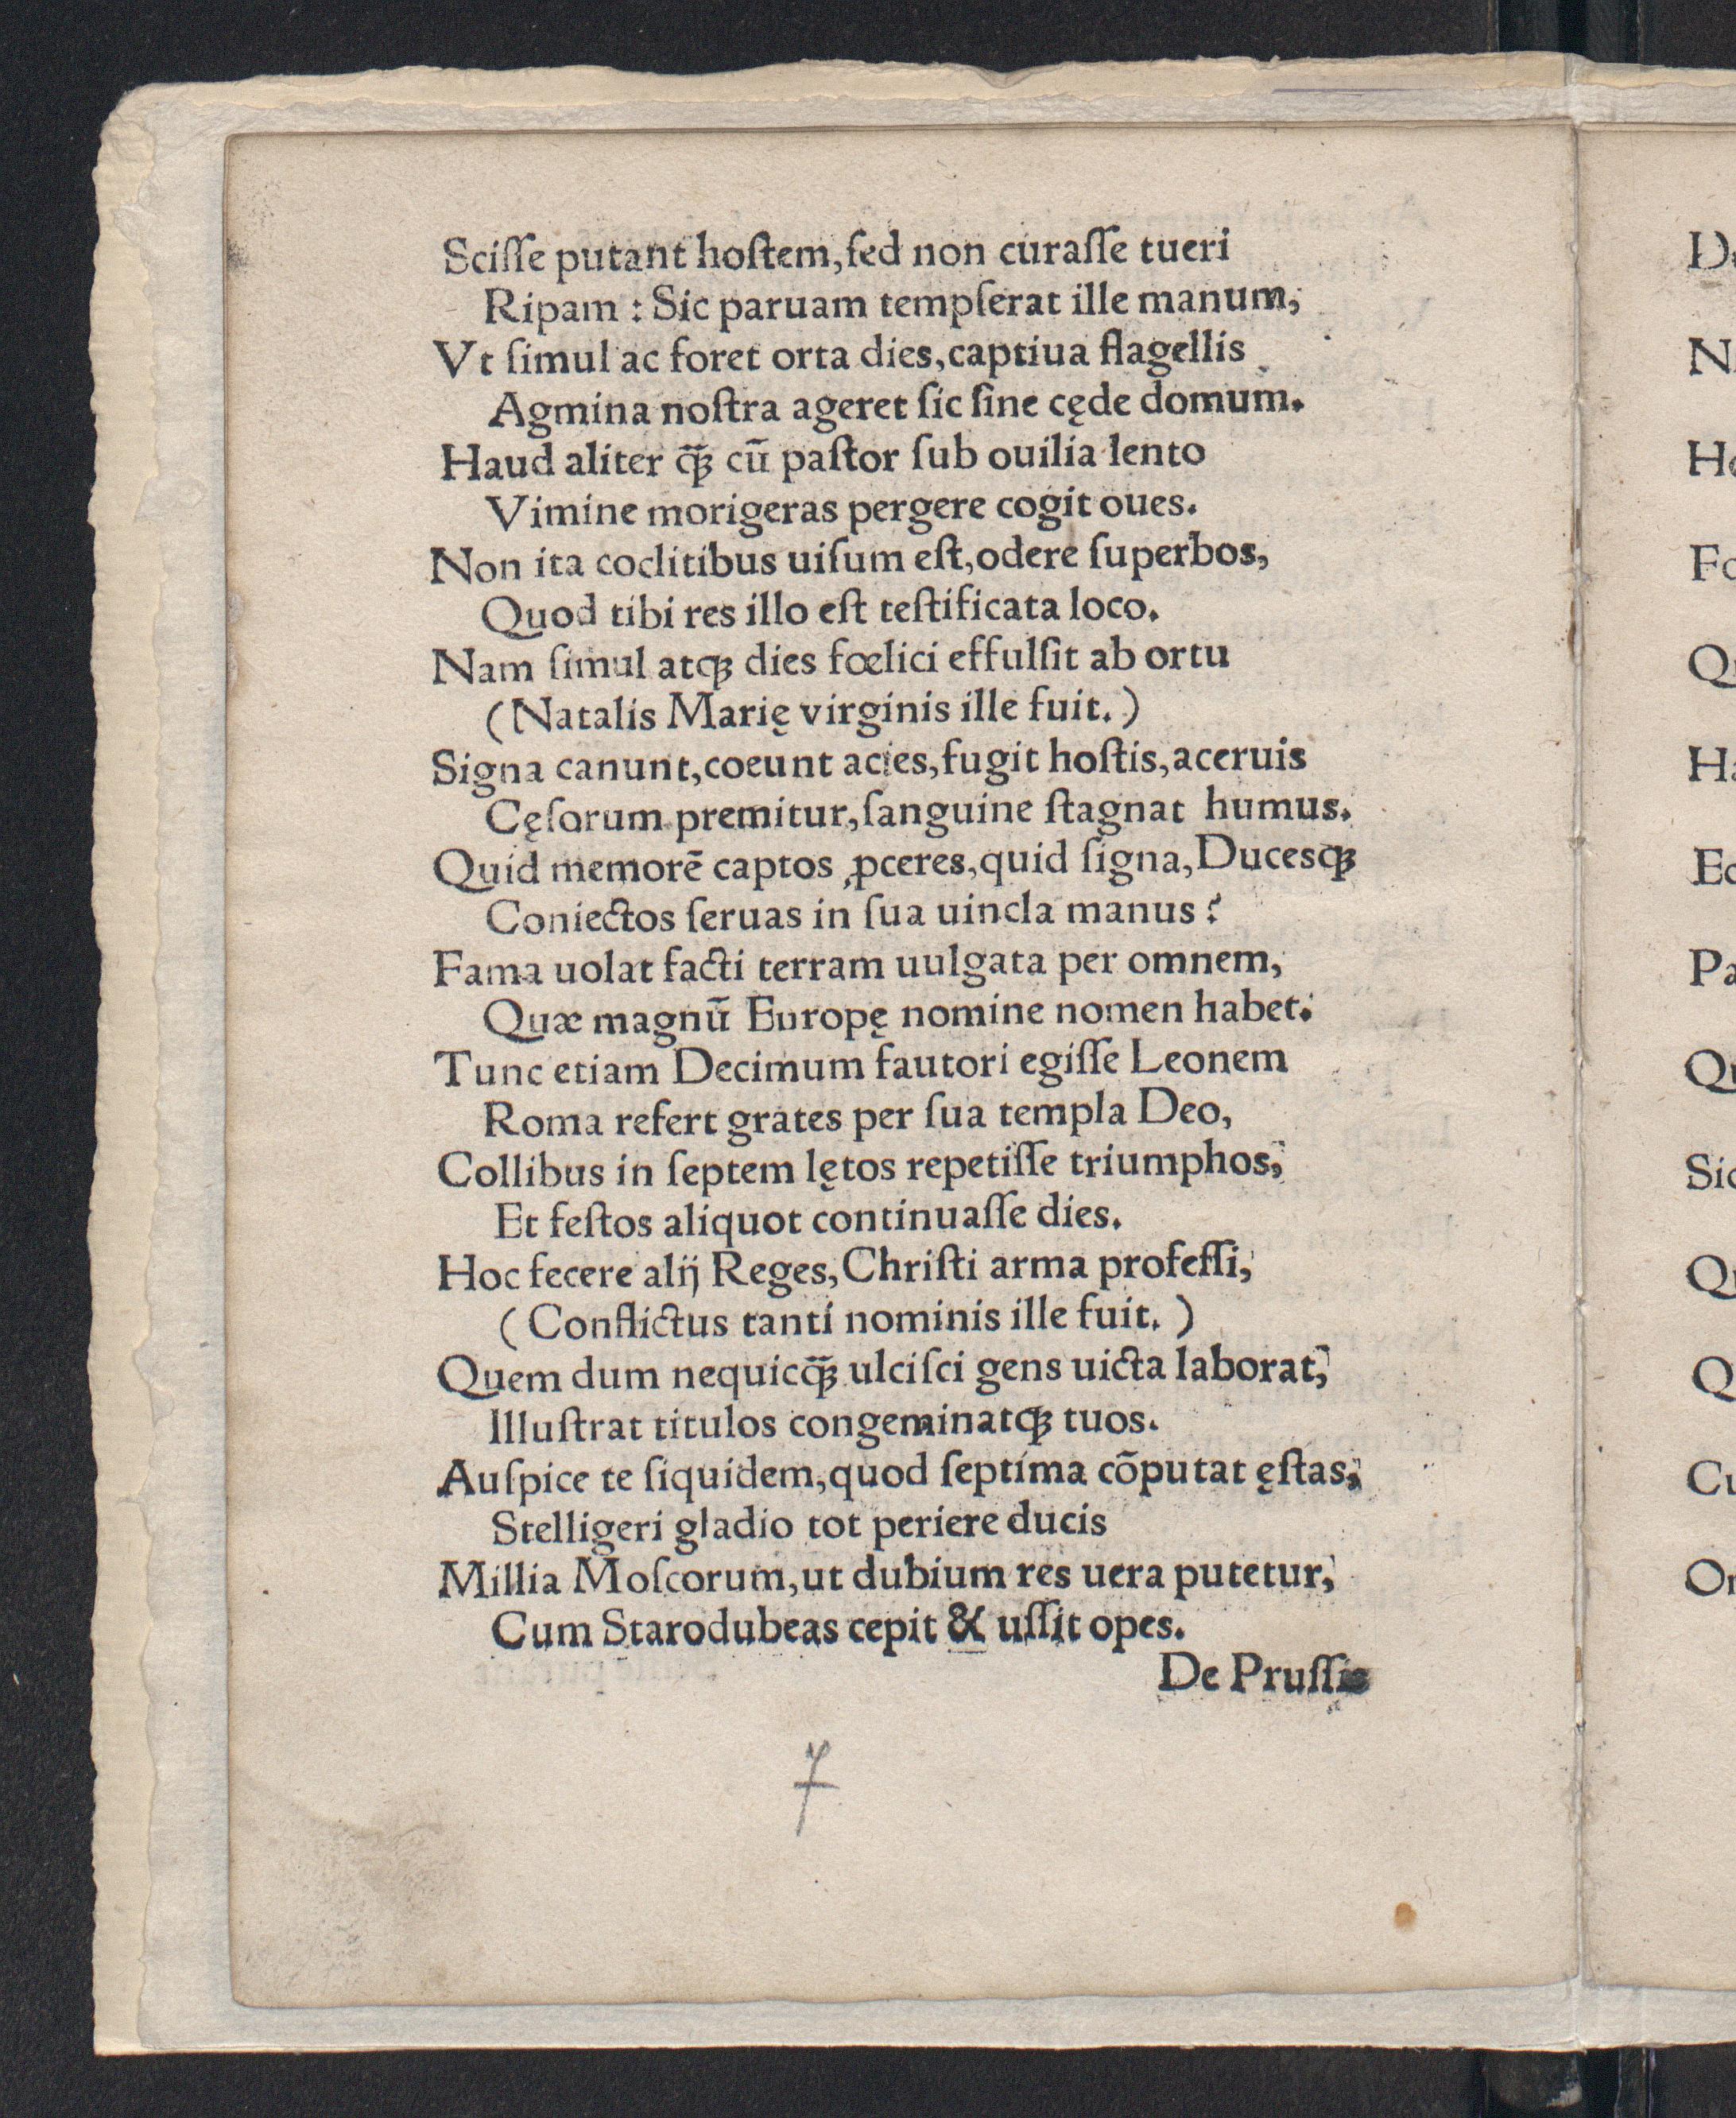 Sciſſe putant hoſtem,ſed non curaſſe tueri
Ripam : Sic paruam tempſerat ille manum,
Vt ſimul ac foret orta dies,captiua flagellis
Agmina noſtra ageret ſic ſine cęde domum.
Haud aliter q̃ꝫ cũ paſtor ſub ouilia lento
Vimine morigeras pergere cogit oues.
Non ita coelitibus uiſum eſt,odere ſuperbos,
Quod tibi res illo eſt teſtificata loco.
Nam ſimul atqꝫ dies fœlici effulſit ab ortu
(Natalis Marię virginis ille fuit.)
Signa canunt,coeunt acies,fugit hoſtis,aceruis
Cęſorum premitur,ſanguine ſtagnat humus.
Quid memorẽ captos ꝓceres,quid ſigna,Ducesqꝫ
Coniectos ſeruas in ſua uincla manus?
Fama uolat facti terram uulgata per omnem,
Quæ magnũ Europę nomine nomen habet.
Tunc etiam Decimum fautori egiſſe Leonem
Roma refert grates per ſua templa Deo,
Collibus in ſeptem lętos repetiſſe triumphos,
Et feſtos aliquot continuaſſe dies.
Hoc fecere alij Reges,Chriſti arma profeſſi,
(Conflictus tanti nominis ille fuit.)
Quem dum nequicq̃ꝫ ulciſci gens uicta laborat,
Illuſtrat titulos congeminatqꝫ tuos.
Auſpice te ſiquidem,quod ſeptima cõputat ęſtas,
Stelligeri gladio tot periere ducis
Millia Moſcorum,ut dubium res uera putetur,
Cum Starodubeas cepit & uſſit opes.
De Pruſſis
7
D
N
H
F
Q
H
E
P
Q
S
Q
Q
C
O